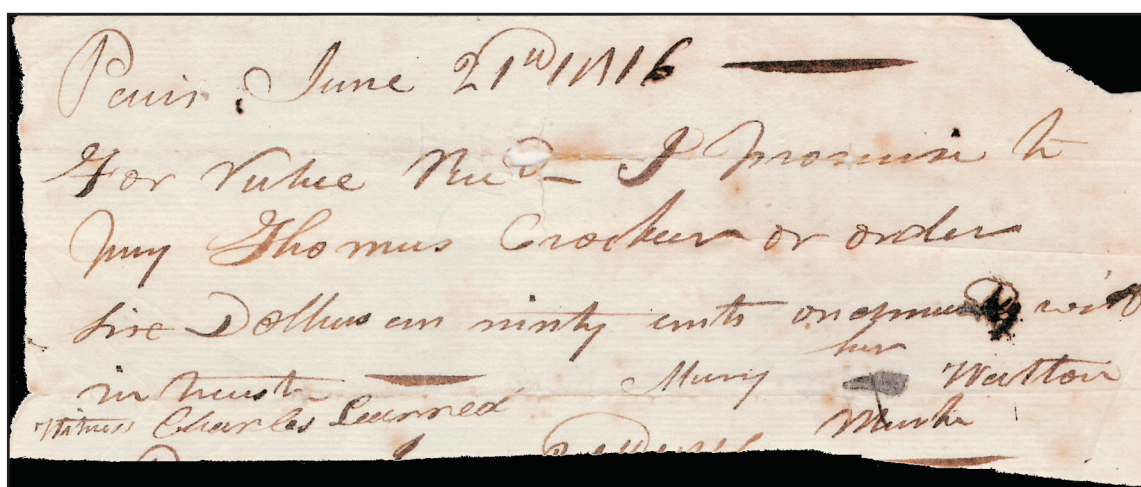 Paris June 21st 1816
For Value Recd I promise to
pay Thomas Crocker or order
six Dollars an ninty cents on demand with
her
intrust Mary Walton
Witness Charles Learned Mark